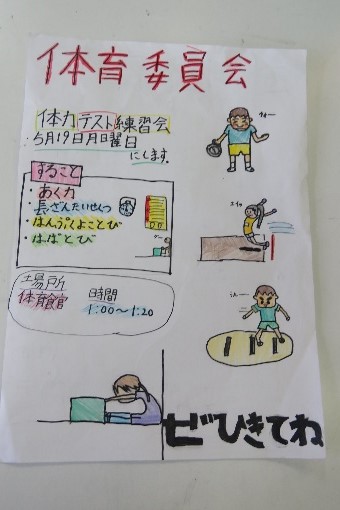 体育委員会
体力テスト練習会
5月19日月曜日
にします。
すること
・あく力
・長ざんたいせんつ
・はんぷくよことび
・はばとび
場所
体育館
時間
1:00〜1:20
ぜひきてね